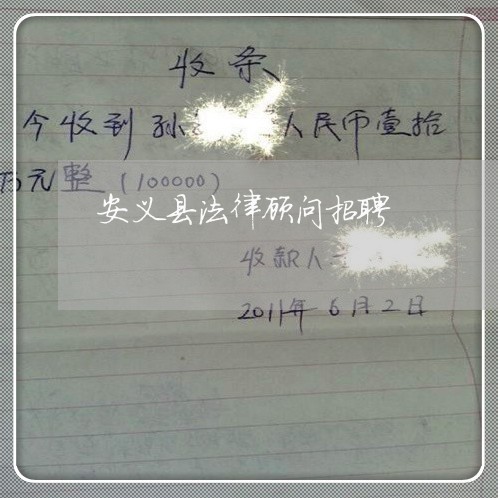 收条
今收到孙 人民币壹拾
万元整（100000）
安义县法律顾问招聘
收款人
2011年6月2日